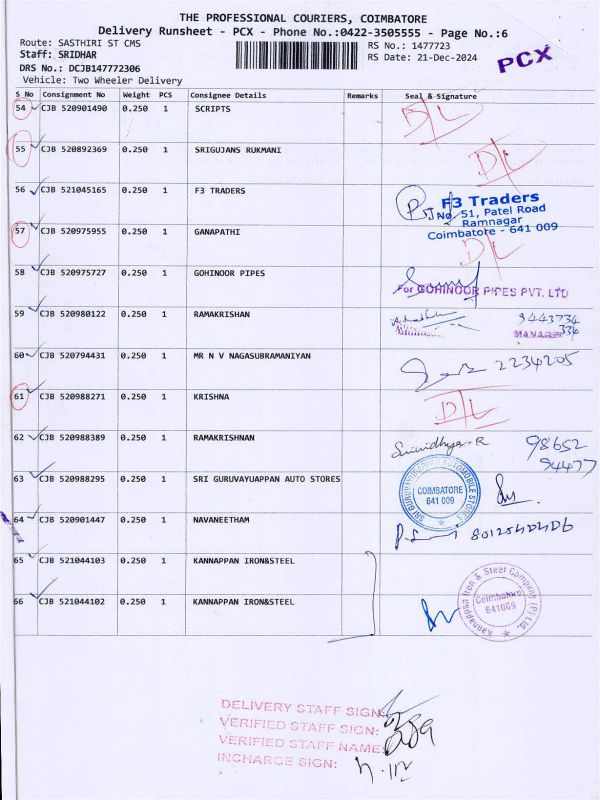 THE PROFESSIONAL COURIERS, COIMBATORE
Delivery Runsheet - PCX - Phone No.:0422-3505555 - Page No.:6
Route: SASTHIRI ST CMS
RS No.: 1477723
Staff: SRIDHAR
RS Date: 21-Dec-2024
PCX
DRS No.: DCJB147772306
Vehicle: Two Wheeler Delivery
S No Consignment No Weight PCS Consignee Details Remarks Seal & Signature
54 CJB 520901490 0.250 1 SCRIPTS D/L
55 CJB 520892369 0.250 1 SRIGUJANS RUKMANI D/L
56 CJB 521045165 0.250 1 F3 TRADERS
F3 Traders
No. 51, Patel Road
Ramnagar
Coimbatore - 641 009
57 CJB 520975955 0.250 1 GANAPATHI D/L
58 CJB 520975727 0.250 1 GOHINOOR PIPES
For GOHINOOR PIPES PVT. LTD
59 CJB 520980122 0.250 1 RAMAKRISHAN 9443734
336
MANAGER
60 CJB 520794431 0.250 1 MR N V NAGASUBRAMANIYAN 2234205
61 CJB 520988271 0.250 1 KRISHNA D/L
62 CJB 520988389 0.250 1 RAMAKRISHNAN Srinidhya.R 98652
94477
63 CJB 520988295 0.250 1 SRI GURUVAYUAPPAN AUTO STORES
SRI GURUVAYURAPPAN AUTOMOBILE STORES
COIMBATORE
641 009
64 CJB 520901447 0.250 1 NAVANEETHAM
65 CJB 521044103 0.250 1 KANNAPPAN IRON&STEEL
66 CJB 521044102 0.250 1 KANNAPPAN IRON&STEEL
Kannappan Iron & Steel Company (P) Ltd.
Coimbatore
641009
DELIVERY STAFF SIGN:
VERIFIED STAFF SIGN:
VERIFIED STAFF NAME:
INCHARGE SIGN: